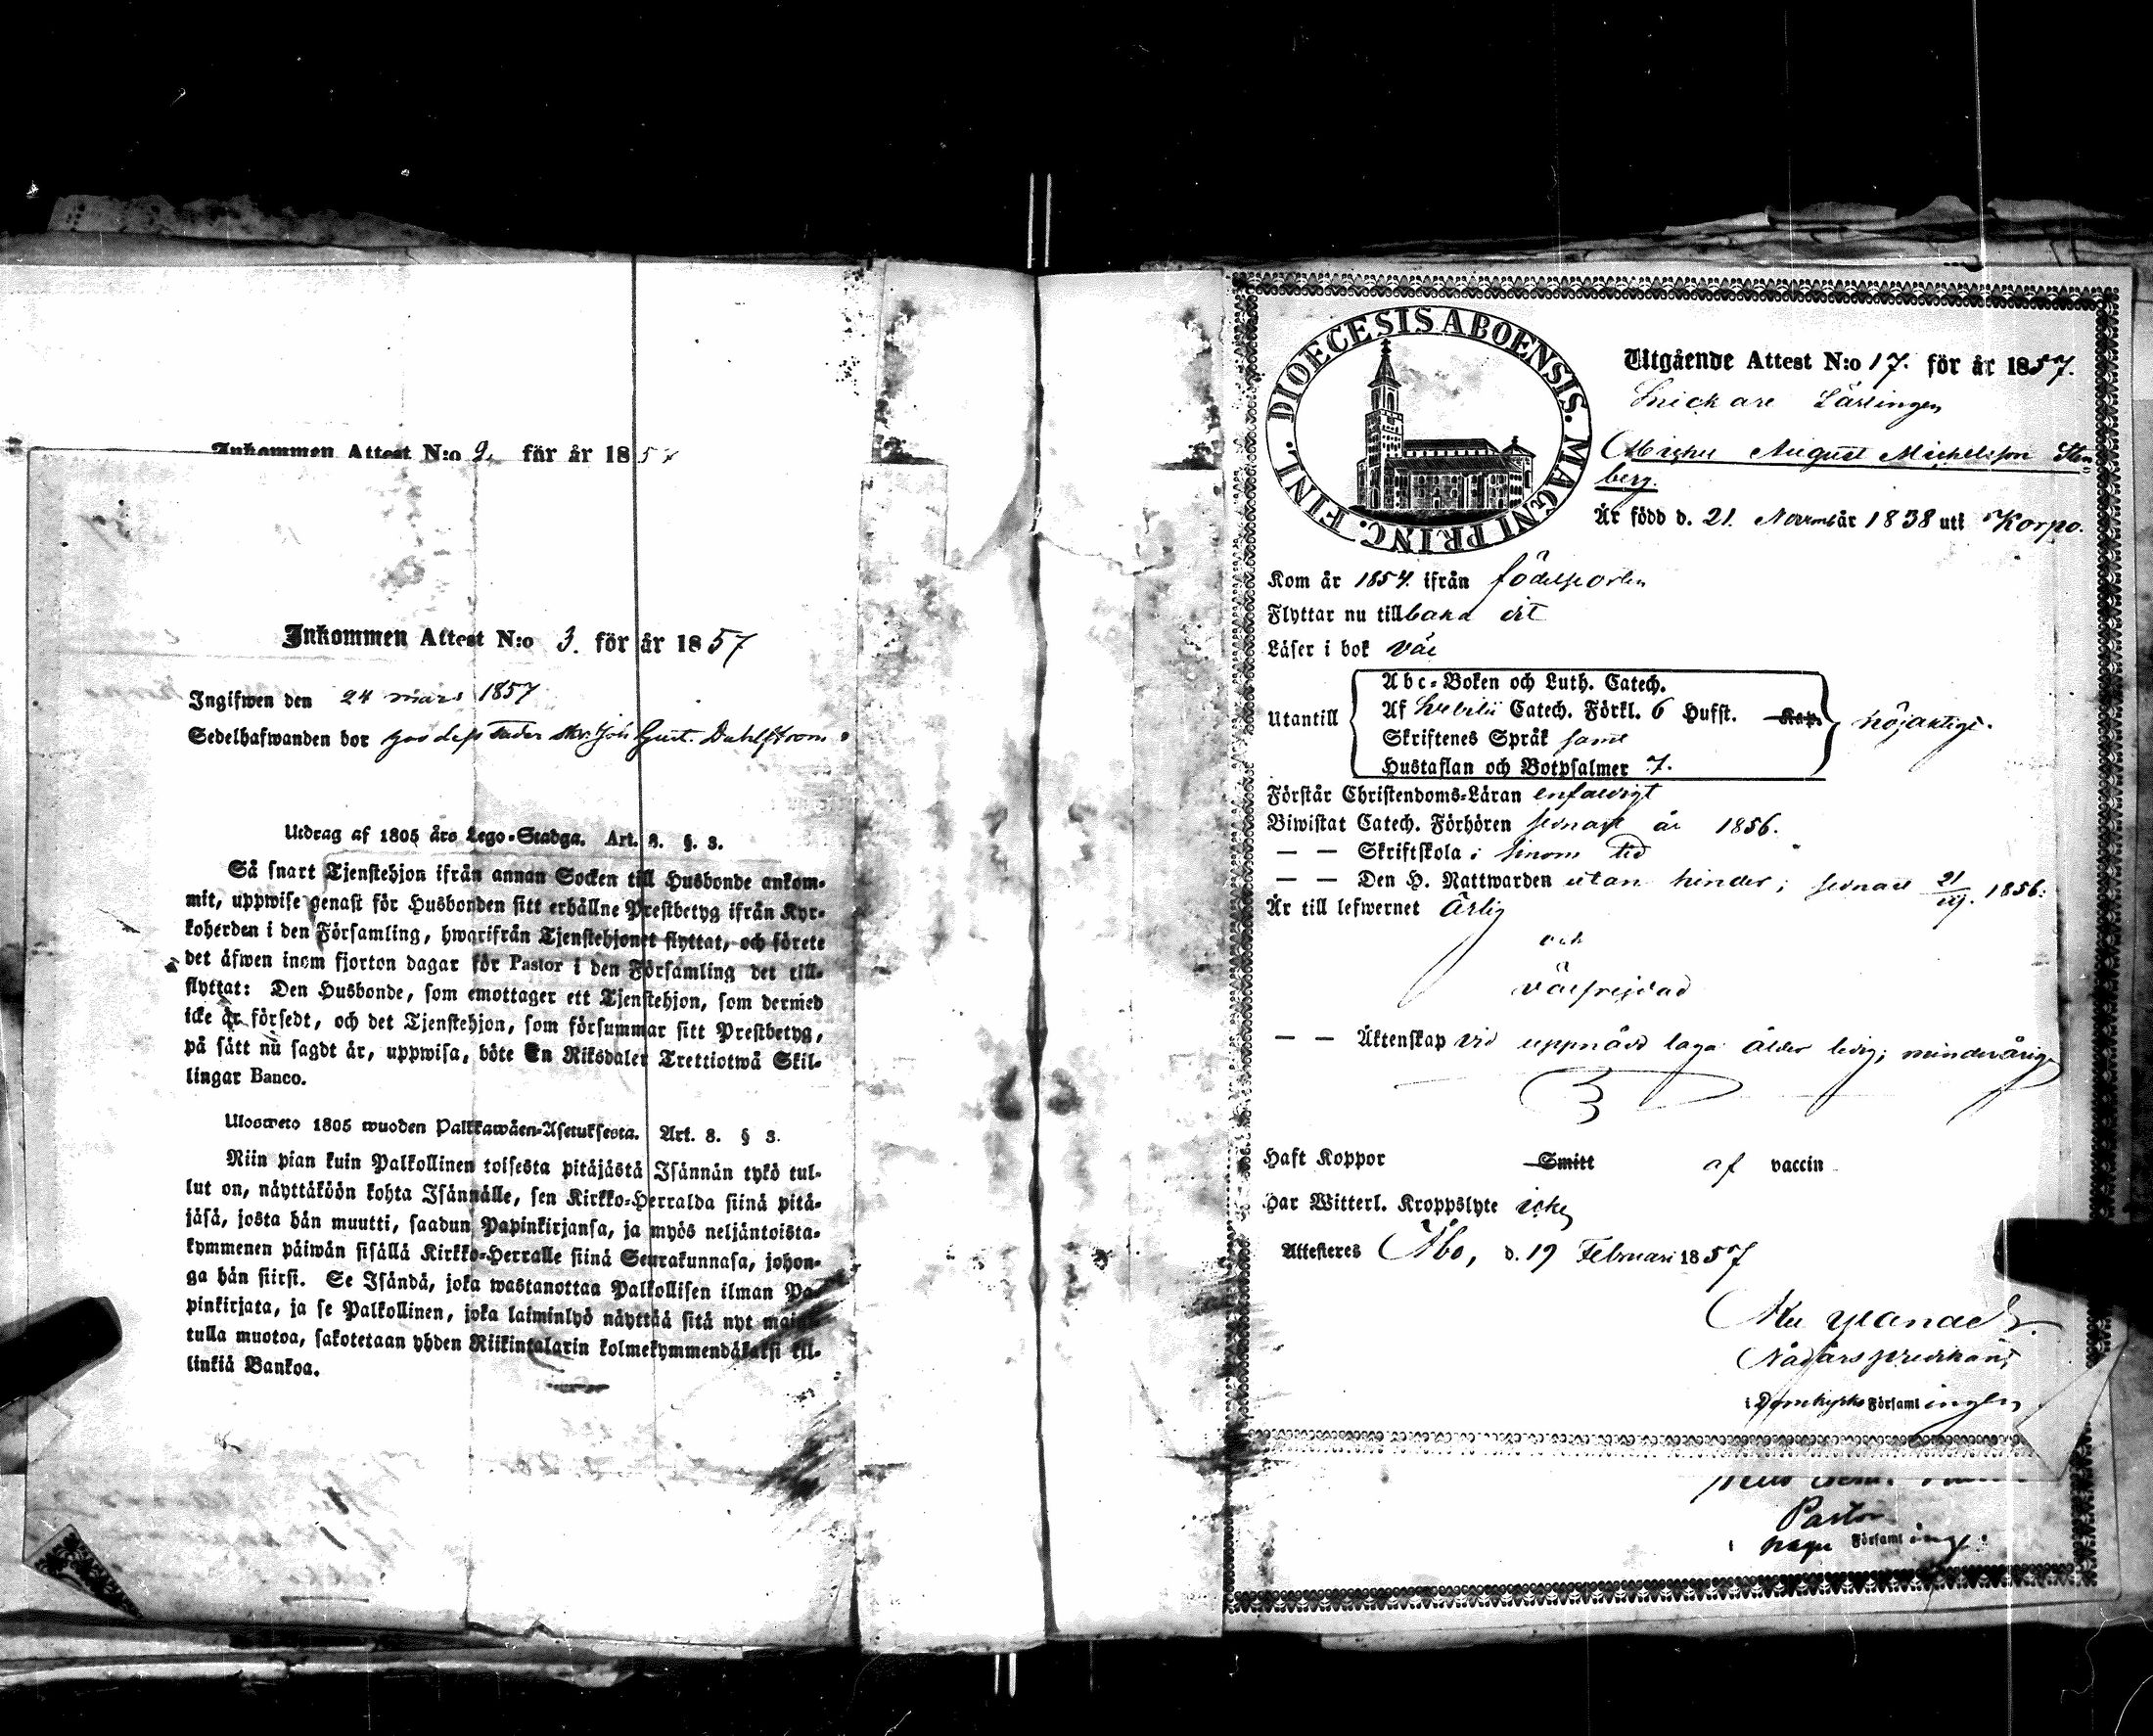 Inkommen Attest N:o 2. för år 1857
Inkommen Attest N:o 3. för år 1857
Ingifwen den 24 mars 1857
Sedelhafwanden bor hos dess Fader Joh Gust. Dahlström.
Utdrag af 1805 års Lego-Stadga. Art. 8. §. 3.
Så snart Tjenstehjon ifrån annan Socken till Husbonde ankom-
mit, uppwise genast för Husbonden sitt erhållne Prestbetyg ifrån Kyr-
koherden i den Församling, hwarifrån Tjenstehjonet flyttat, och förete
det äfwen inom fjorton dagar för Pastor i den Församling det till-
flyttat: Den Husbonde, som emottager ett Tjenstehjon, som dermed
icke är försedt, och det Tjenstehjon, som försummar sitt Prestbetyg,
på sätt nu sagdt är, uppwisa, böte En Riksdaler Trettiotwå Skil-
lingar Banco.
Ulosweto 1805 wuoden Palkkawäen-Asetuksesta. Art. 8. § 3.
Niin pian kuin Palkollinen toisesta pitäjästä Isännän tykö tul-
lut on, näyttäköön kohta Isännälle, sen Kirkko-Herralda siinä pitä-
jäsä, josta hän muutti, saadun Papinkirjansa, ja myös neljäntoista-
kymmenen päiwän sisällä Kirkko-Herralle siinä Seurakunnasa, johon-
ga hän siirsi. Se Isändä, joka wastanottaa Palkollisen ilman Pa-
pinkirjata, ja se Palkollinen, joka laiminlyö näyttää sitä nyt mainit-
tulla muotoa, sakotetaan yhden Riikintalarin kolmekymmendäkaksi kil-
linkiä Bankoa.
FINL. DIOECESIS ABOENSIS. MAGNI PRINC.
Utgående Attest N:o 17. för år 1857.
Snickare Lärlingen
Michel August Michelsson Sten
berg.
Är född d. 21. Novemb år 1838 uti Korpo.
Kom år 1854 ifrån födelseorten
Flyttar nu tillbaka dit
Läser i bok väl
Utantill
Abc-Boken och Luth. Catech.
Af Svebilii Catech. Förkl. 6 Hufst. Kap.
Skriftenes Språk samt
Hustaflan och Botpsalmer 7.
nöjaktigt.
Förstår Christendoms-Läran enfaldigt
Biwistat Catech. Förhören sednast år 1856.
— — Skriftskola i sinom tid
— — Den H. Nattwarden utan hinder; sednast 21/ 1856.
Är till lefwernet Ärlig
och
välfrejdad
— — Äktenskap vid uppnådd laga ålder ledig; minderårig
Haft Koppor Smitt af vaccin
Har Witterl. Kroppslyte icke
Attesteres Åbo, d. 19 Februari 1857
Nådårspredikant
i Domkyrko Församlingen
Pastor
i Församling.